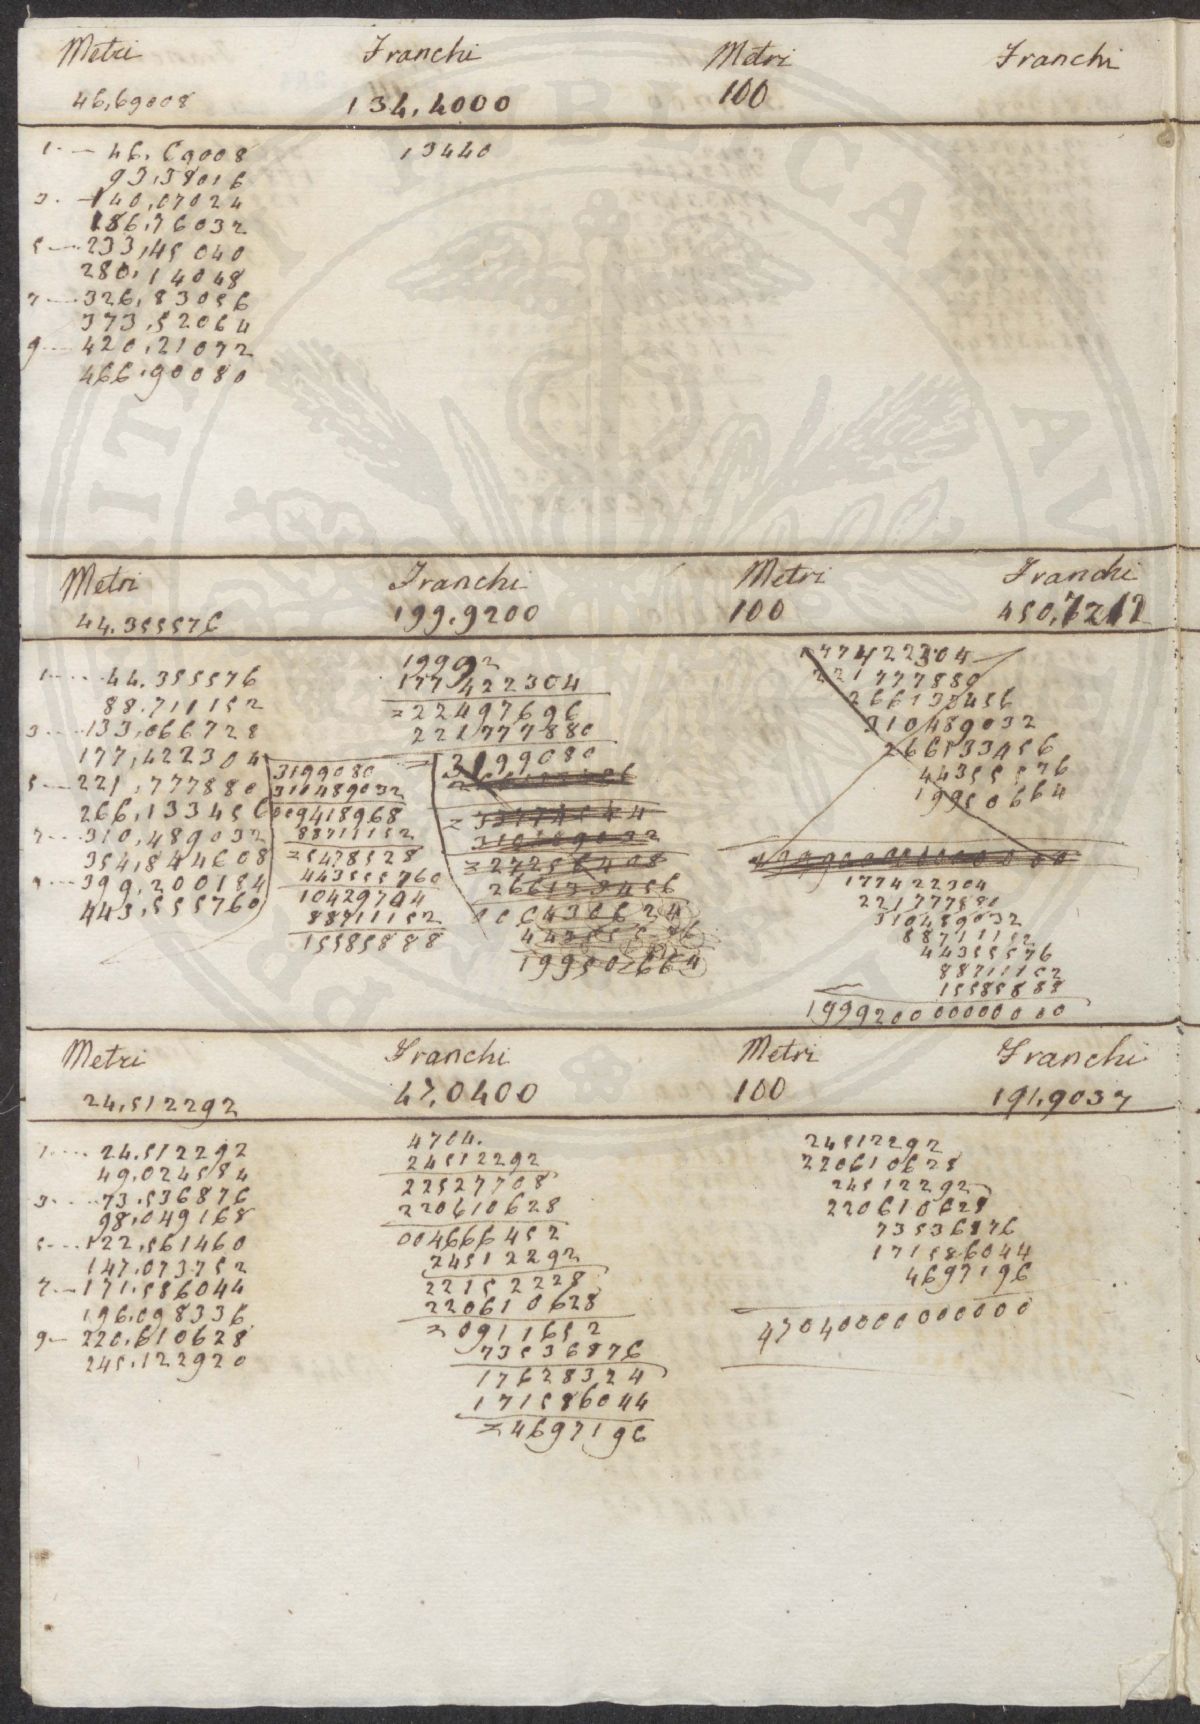 Metri Franchi Metri Franchi
46,69008 134,4000 100
1 46,69008
93,38016
3 140,07024
186,76032
5 233,45040
280,14048
7 326,83056
373,52064
9 420,21072
466,90080
13440
Metri Franchi Metri Franchi
44,355576 199,9200 100 450,7212
1 44,355576
88,711152
3 133,066728
177,422304
5 221,777880
266,133456
7 310,489032
354,844608
9 399,200184
443,555760
3199080
310489032
009418968
88711152
=5478528
443555760
10429704
88711152
15585888
19992
177422304
=22497696
221777880
=3199080
310489032
=27256408
266133456
00C430624
19950664
177422304
221777880
266133456
310489032
266133456
44355576
19950664
177422304
221777880
310489032
88711152
44355576
88711152
15585888
19992000000000
Metri Franchi Metri Franchi
24,512292 47,0400 100 191,9037
1 24,512292
49,024584
3 73,536876
98,049168
5 122,561460
147,073752
7 171,586044
196,098336
9 220,610628
245,122920
4704.
24512292
22527708
220610628
004666452
24512292
22152228
220610628
=0911652
73536876
17628324
171586044
=4697196
24512292
220610628
24512292
220610628
73536876
171586044
4697196
47040000000000